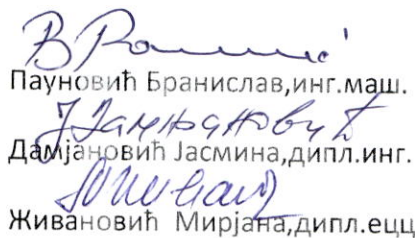 Пауновић Бранислав,инг.маш.
Дамјановић Јасмина,дипл.инг.
Живановић Мирјана,дипл.ецц